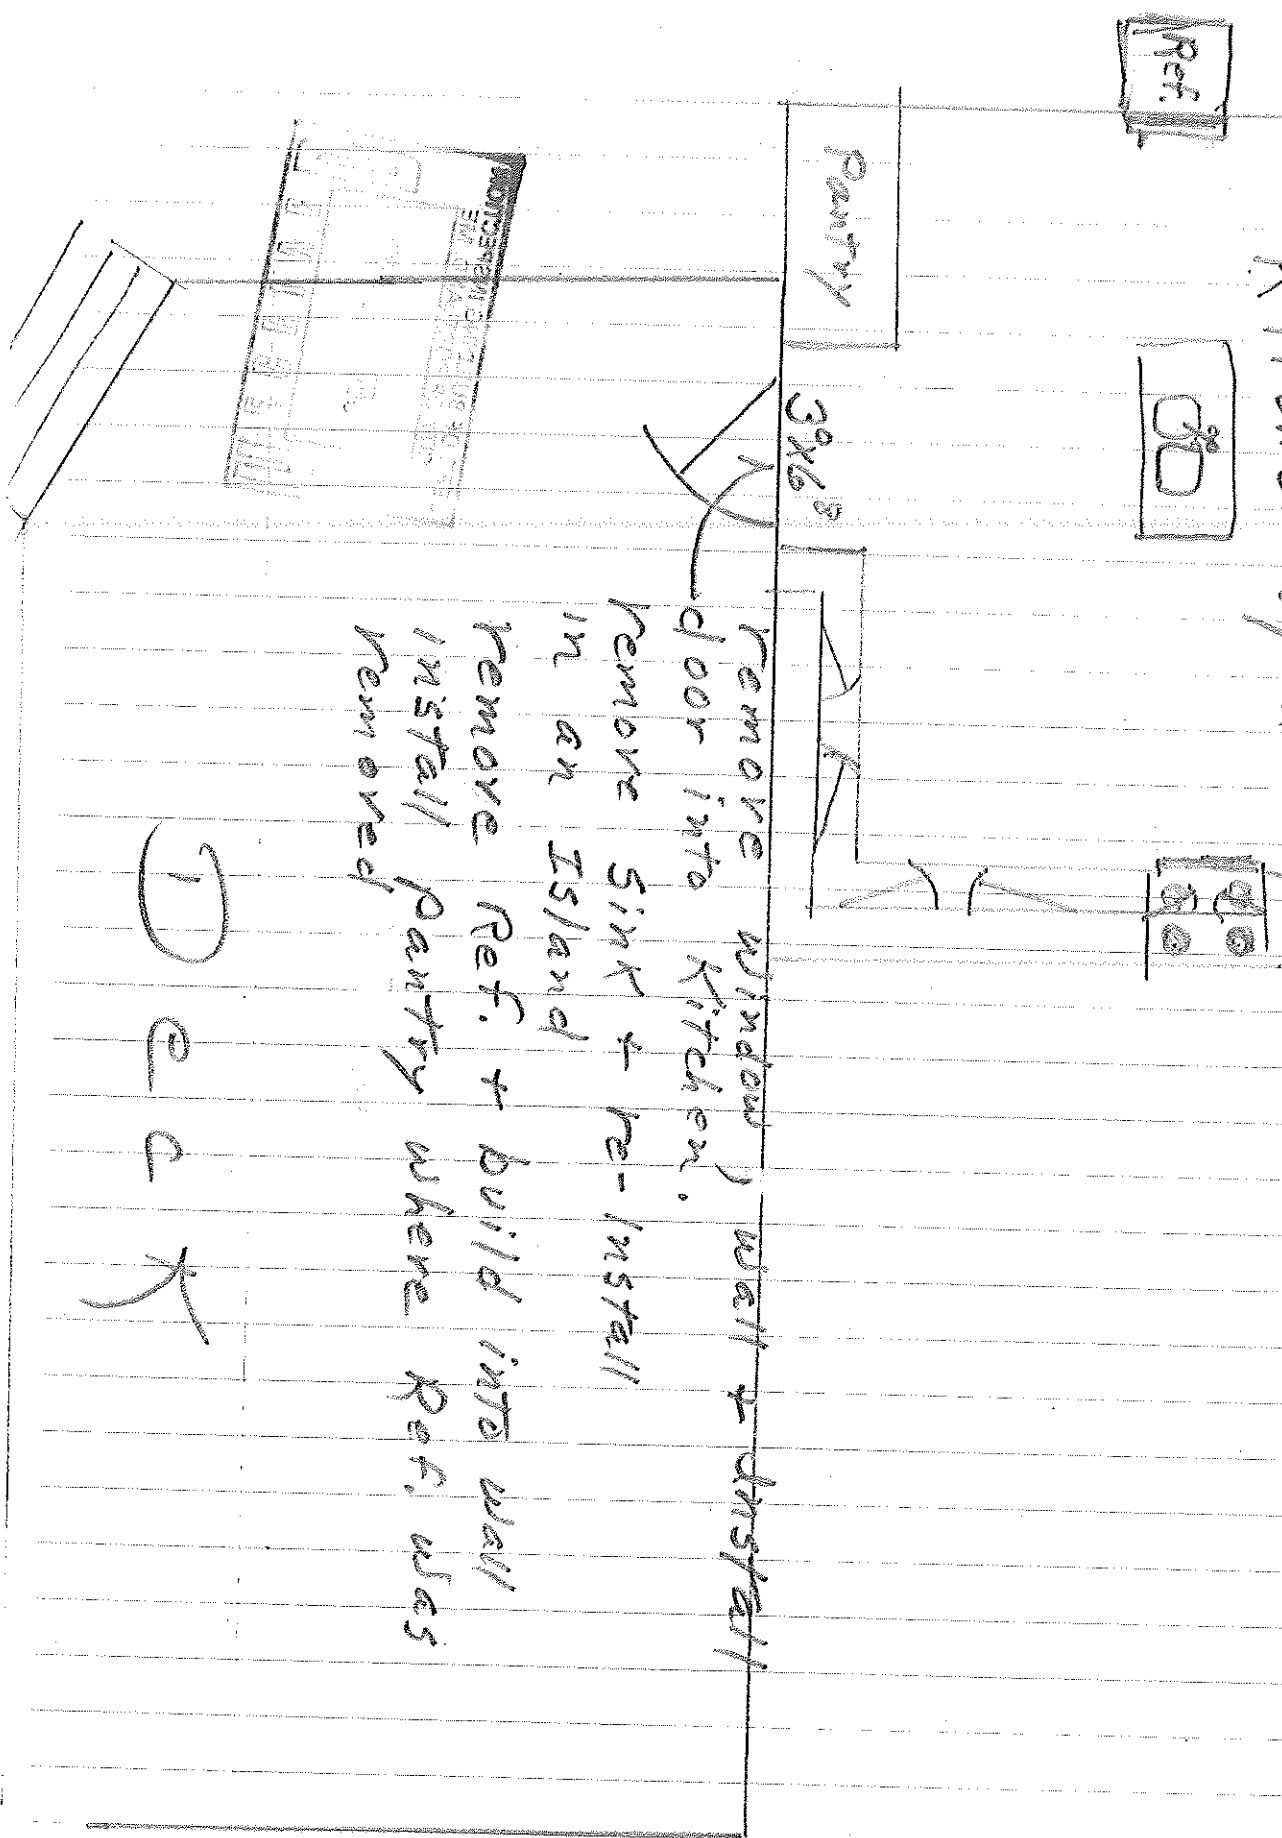 Ref.
Pantry
3⁰x6⁸
remove window, wall + install
door into Kitchen.
remove Sink + re-Install
in an Island
remove Ref. + build into wall
install pantry where Ref. was
removed
Deck